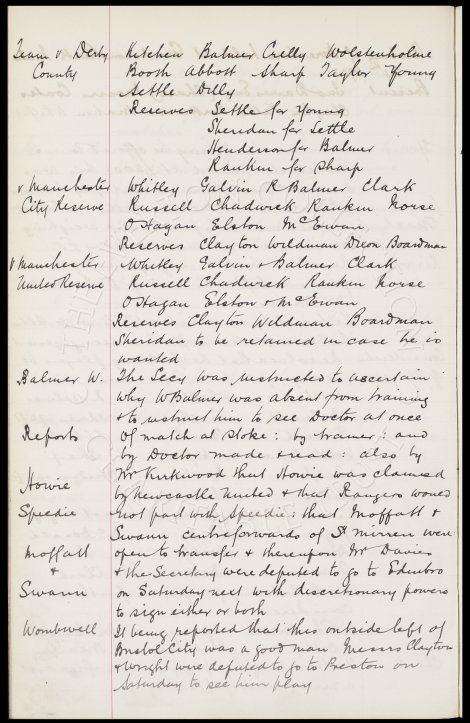 Team v Derby Kitchen Balmer Crelly Wolstenholme
County Booth Abbott Sharp Taylor Young
Settle Dilly
Reserves Settle for Young
Sheridan for Settle
Henderson for Balmer
Rankin for Sharp
v Manchester Whitley Galvin R Balmer Clark
City Reserve Russell Chadwick Rankin Morse
O'Hagan Elston McEwan
Reserves Clayton Wildman Dixon Boardman
v Manchester Whitley Galvin + Balmer Clark
United Reserve Russell Chadwick Rankin Morse
O'Hagan Elston + McEwan
Reserves Clayton Wildman Boardman
Sheridan to be retained in case he is
wanted
Balmer W. The Secy was instructed to ascertain
why W Balmer was absent from training
+ to instruct him to see Doctor at once
Reports Of match at Stoke: by trainer: and
by Doctor made + read: also by
Mr Kirkwood that Howie was claimed
Howie by Newcastle United + that Rangers would
Speedie not part with Speedie: that Moffatt +
Swann centreforwards of St Mirren were
Moffatt open to transfer + thereupon Mr Davies
+ + the Secretary were deputed to go to Edinbro
Swann on Saturday next with discretionary powers
to sign either or both
Wombwell It being reported that this outside left of
Bristol City was a good man Messrs Clayton
+ Wright were deputed to go to Preston on
Saturday to see him play